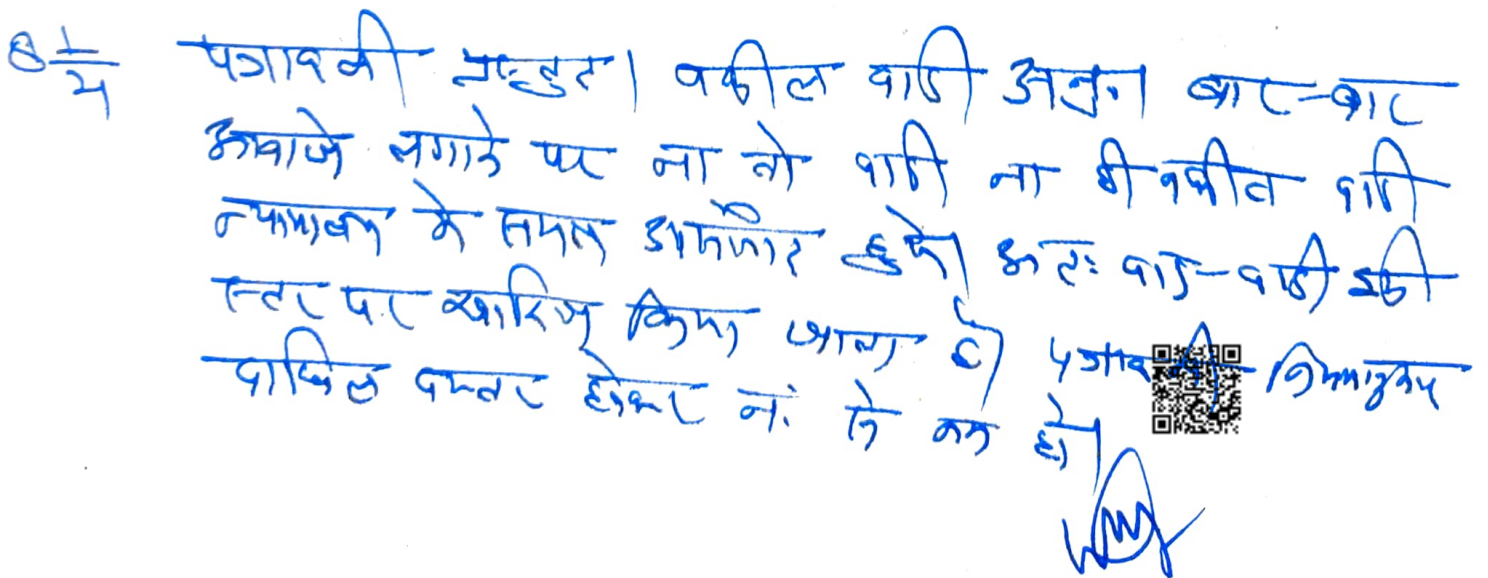 पत्रावली प्रस्तुत। वकील वादी अनु०। बार-बार
आवाजे लगाने पर ना तो वादी ना ही वकील वादी
न्यायालय के समक्ष उपस्थित हुये। अतः वाद-वादी इसी
स्तर पर खारिज किया जाता है। पत्रावली नियमानुसार
दाखिल दफ्तर होकर नं. से कम हो।